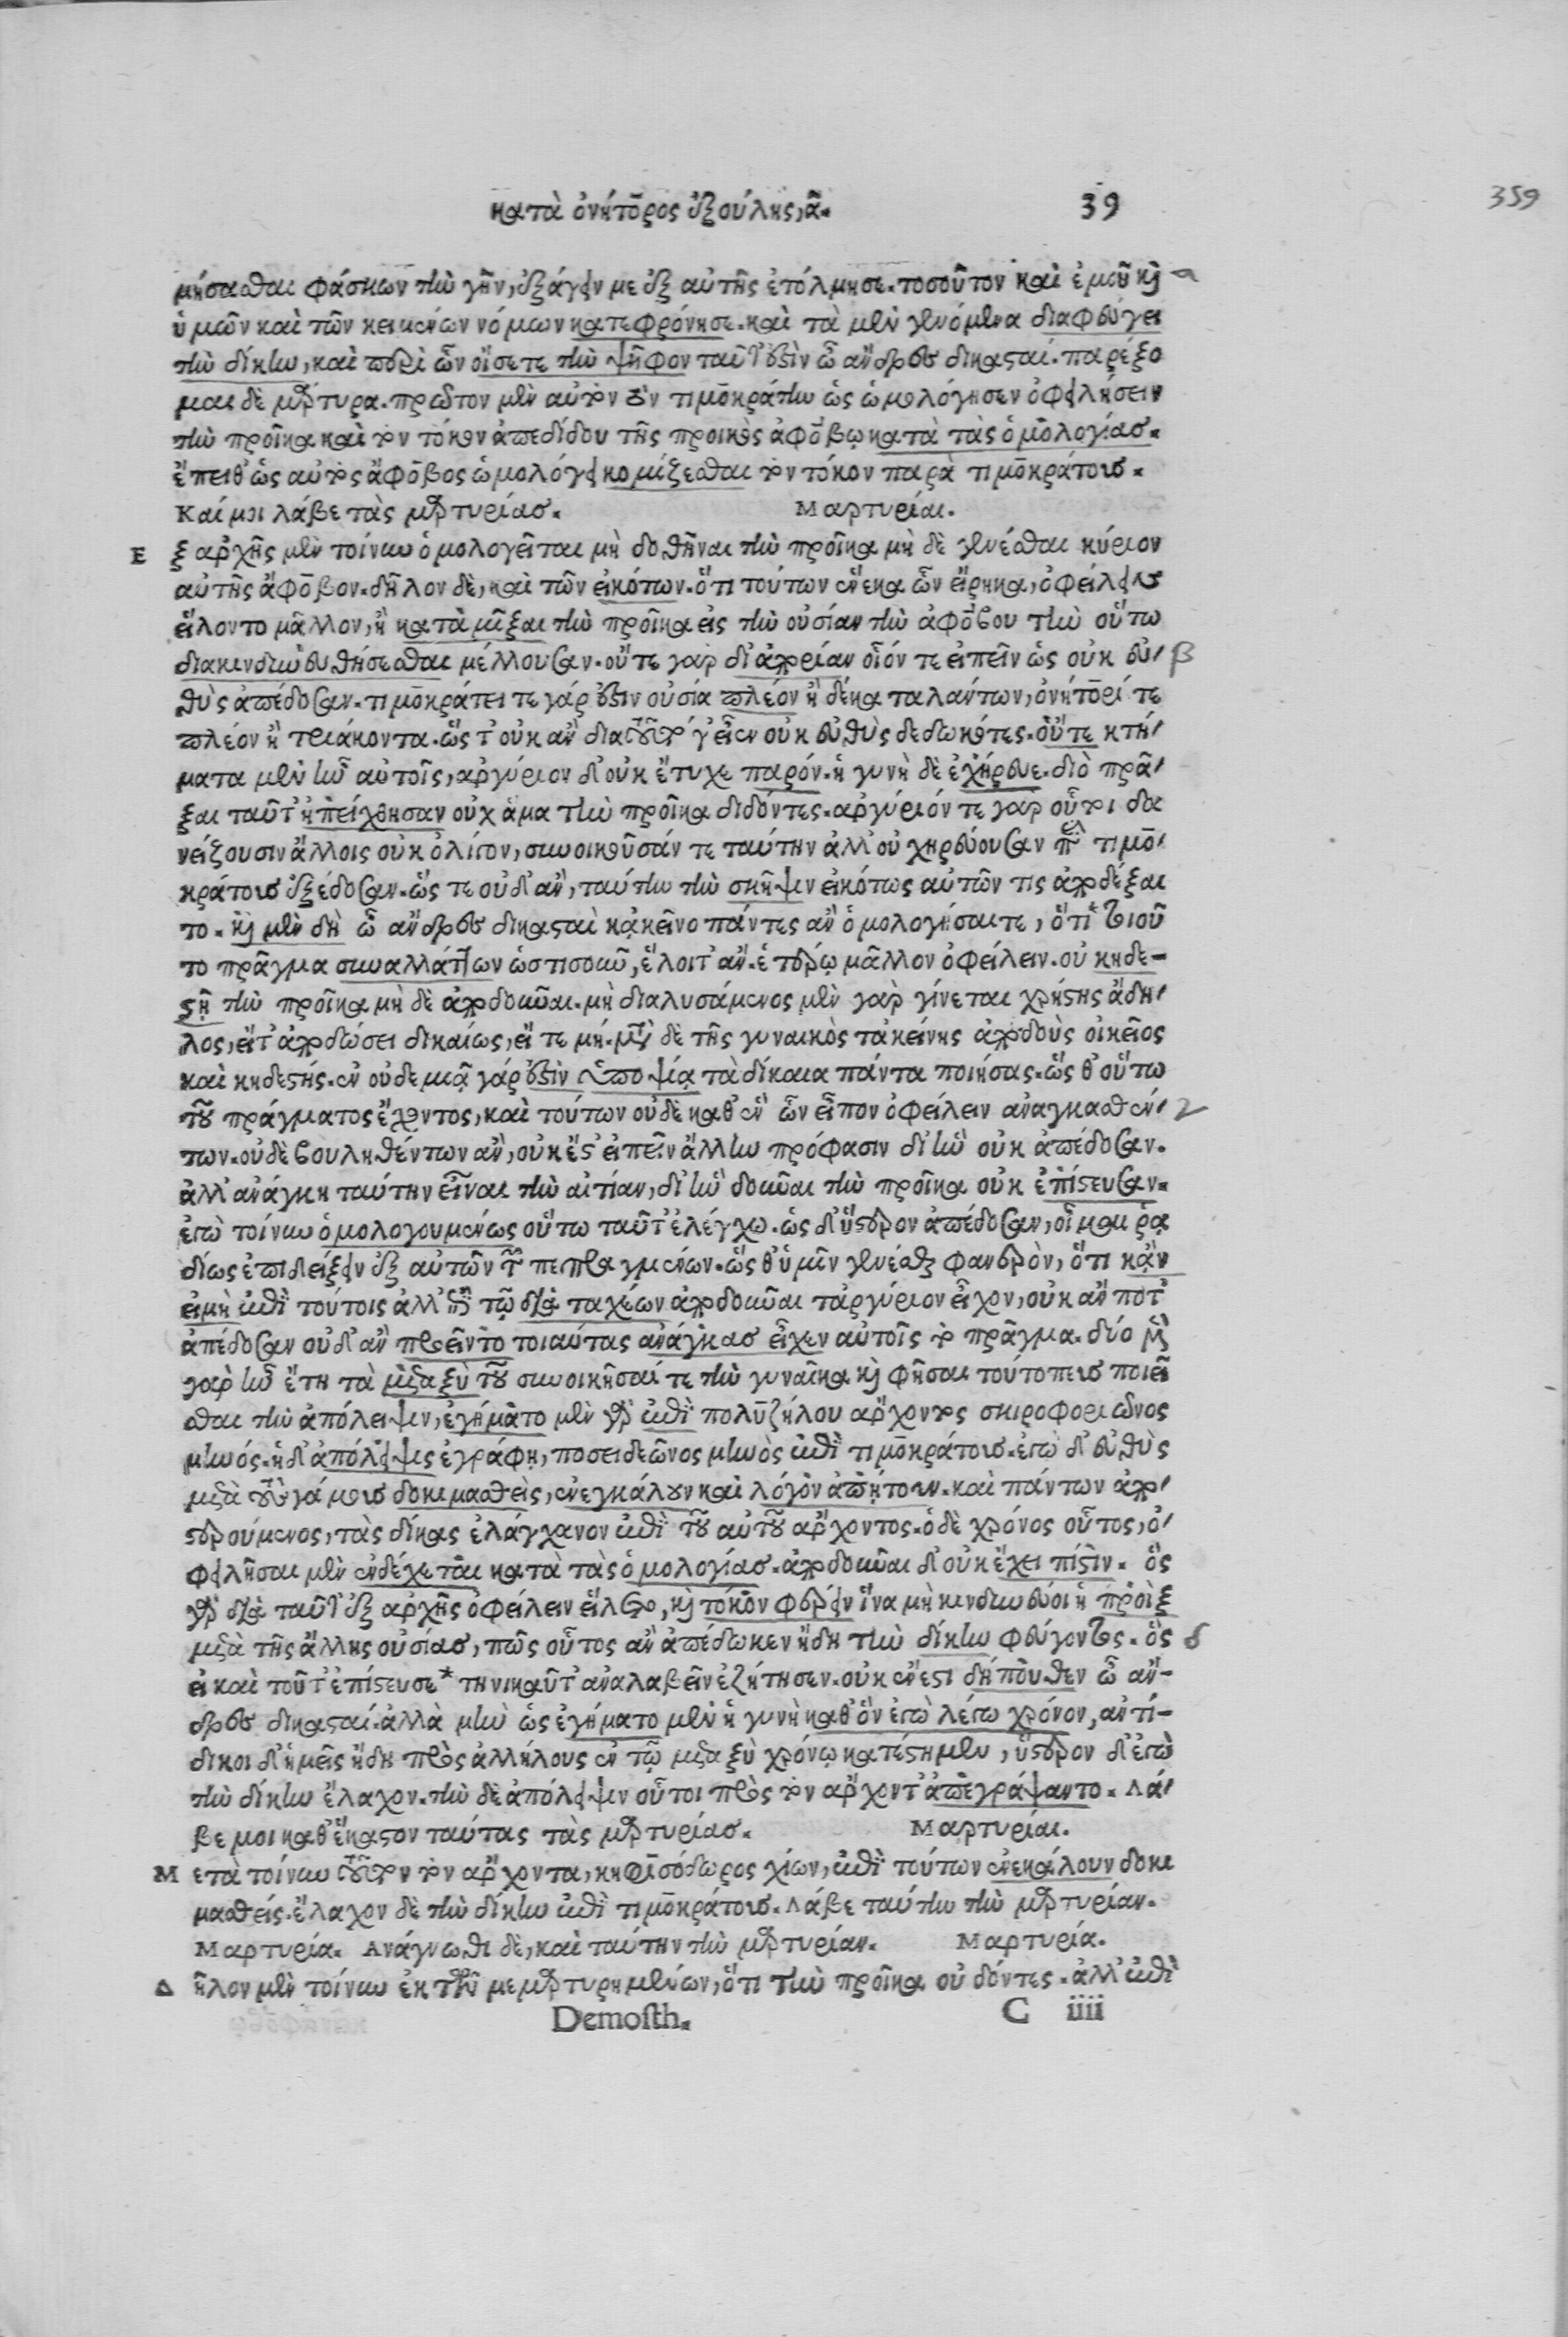 κατὰ ὀνήτορος ἐξούλης, ᾱ. 39
359
μήσασθαι φάσκων τὴν γῆν, ἐξάγειν με ἐξ αὐτῆς ἐτόλμησε. τοσοῦτον καὶ ἐμοῦ καὶ α
ὑμῶν καὶ τῶν κειμένων νόμων κατεφρόνησε. καὶ τὰ μὲν γενόμενα διαφεύγει
τὴν δίκην, καὶ περὶ ὧν οἴσετε τὴν ψῆφον ταῦτ' ἐστὶν ὦ ἄνδρες δικασταί. παρέξο
μαι δὲ μάρτυρα. πρῶτον μὲν αὐτὸν τὸν τιμοκράτην ὡς ὡμολόγησεν ὀφειλήσειν
τὴν προῖκα καὶ τὸν τόκον ἀπεδίδου τῆς προικὸς ἀφόβῳ κατὰ τὰς ὁμολογίας.
ἔπειθ' ὡς αὐτὸς ἄφοβος ὡμολόγει κομίζεσθαι τὸν τόκον παρὰ τιμοκράτους.
Καί μοι λάβε τὰς μαρτυρίας. Μαρτυρίαι.
Ε ξ ἀρχῆς μὲν τοίνυν ὁμολογεῖται μὴ δοθῆναι τὴν προῖκα μὴ δὲ γενέσθαι κύριον
αὐτῆς ἄφοβον. δῆλον δὲ, καὶ τῶν εἰκότων. ὅτι τούτων ἕνεκα ὧν εἴρηκα, ὀφείλειν
εἵλοντο μᾶλλον, ἢ κατὰ μῖξαι τὴν προῖκα εἰς τὴν οὐσίαν τὴν ἀφόβου τὴν οὕτω
διακινδυνευθήσεσθαι μέλλουσαν. οὔτε γὰρ δι' ἀπορίαν οἷόν τε εἰπεῖν ὡς οὐκ εὐ- β
θὺς ἀπέδοσαν. τιμοκράτει τε γάρ ἐστιν οὐσία πλέον ἢ δέκα ταλάντων, ὀνήτορί τε
πλέον ἢ τριάκοντα. ὥστ' οὐκ ἂν διὰ τοῦτό γ' εἶεν οὐκ εὐθὺς δεδωκότες. οὔτε κτή-
ματα μὲν ἦν αὐτοῖς, ἀργύριον δ' οὐκ ἔτυχε παρόν. ἡ γυνὴ δὲ ἐχήρευε. διὸ πρᾶ-
ξαι ταῦτ' ἠπείχθησαν οὐχ ἅμα τὴν προῖκα διδόντες. ἀργύριόν τε γὰρ οὗτοι δα
νείζουσιν ἄλλοις οὐκ ὀλίγον, συνοικοῦσάν τε ταύτην ἀλλ' οὐ χηρεύουσαν παρὰ τιμο-
κράτους ἐξέδοσαν. ὥς τε οὐδ' ἂν, ταύτην τὴν σκῆψιν εἰκότως αὐτῶν τις ἀποδέξαι
το. καὶ μὲν δὴ ὦ ἄνδρες δικασταὶ κἀκεῖνο πάντες ἂν ὁμολογήσαιτε, ὅτι* τιοῦ
το πρᾶγμα συναλλάττων ὡστισοῦν, ἕλοιτ' ἄν. ἑτέρῳ μᾶλλον ὀφείλειν. οὐ κηδε-
στῇ τὴν προῖκα μὴ δὲ ἀποδοῦναι. μὴ διαλυσάμενος μὲν γὰρ γίνεται χρήστης ἄδη-
λος, εἴτ' ἀποδώσει δικαίως, εἴ τε μή. μετὰ δὲ τῆς γυναικὸς τἀκείνης ἀποδοὺς οἰκεῖος
καὶ κηδεστής. ἐν οὐδεμιᾷ γάρ ἐστὶν ὑποψίᾳ τὰ δίκαια πάντα ποιήσας. ὥσθ' οὕτω
τοῦ πράγματος ἔχοντος, καὶ τούτων οὐδὲ καθ' ἓν ὧν εἶπον ὀφείλειν ἀναγκασθέν- γ
των. οὐδὲ βουληθέντων ἂν, οὐκ ἔστ' εἰπεῖν ἄλλην πρόφασιν δι' ἣν οὐκ ἀπέδοσαν.
ἀλλ' ἀνάγκη ταύτην εἶναι τὴν αἰτίαν, δι' ἣν δοῦναι τὴν προῖκα οὐκ ἐπίστευσαν.
ἐγὼ τοίνυν ὁμολογουμένως οὕτω ταῦτ' ἐλέγχω. ὡς δ' ὕστερον ἀπέδοσαν, οἶμαι ῥᾳ
δίως ἐπιδείξειν ἐξ αὐτῶν τῶν πεπραγμένων. ὥσθ' ὑμῖν γενέσθαι φανερὸν, ὅτι κἂν
εἰμὴ ἐπὶ τούτοις ἀλλ' ἐπὶ τῷ διὰ ταχέων ἀποδοῦναι τἀργύριον εἶχον, οὐκ ἄν ποτ'
ἀπέδοσαν οὐδ' ἂν προεῖντο τοιαύτας ἀνάγκας εἶχεν αὐτοῖς τὸ πρᾶγμα. δύο μὲν
γὰρ ἦν ἔτη τὰ μεταξὺ τοῦ συνοικῆσαί τε τὴν γυναῖκα καὶ φῆσαι τούτους ποιεῖ
σθαι τὴν ἀπόλειψιν, ἐγήματο μὲν γὰρ ἐπὶ πολυζήλου ἄρχοντος σκιροφοριῶνος
μηνός. ἡ δ' ἀπόλειψις ἐγράφη, ποσειδεῶνος μηνὸς ἐπὶ τιμοκράτους. ἐγὼ δ' εὐθὺς
μετὰ τοὺς γάμους δοκιμασθεὶς, ἐνεγκάλουν καὶ λόγον ἀπῄτουν. καὶ πάντων ἀπο-
στερούμενος, τὰς δίκας ἐλάγχανον ἐπὶ τοῦ αὐτοῦ ἄρχοντος. ὁ δὲ χρόνος οὗτος, ὀ-
φειλῆσαι μὲν ἐνδέχεται κατὰ τὰς ὁμολογίας. ἀποδοῦναι δ' οὐκ ἔχει πίστιν. ὃς
γὰρ διὰ ταῦτ' ἐξ ἀρχῆς ὀφείλειν εἵλετο, καὶ τόκον φέρειν ἵνα μὴ κινδυνεύοι ἡ προὶξ
μετὰ τῆς ἄλλης οὐσίας, πῶς οὗτος ἂν ἀπέδωκεν ἤδη τὴν δίκην φεύγοντος. ὃς δ
εἰ καὶ τοῦτ' ἐπίστευσε* τηνικαῦτ' ἀναλαβεῖν ἐζήτησεν. οὐκ ἔνεστι δήπουθεν ὦ ἄν-
δρες δικασταί. ἀλλὰ μὴν ὡς ἐγήματο μὲν ἡ γυνὴ καθ' ὃν ἐγὼ λέγω χρόνον, ἀντί-
δικοι δ' ἡμεῖς ἤδη πρὸς ἀλλήλους ἐν τῷ μεταξὺ χρόνῳ κατέστημεν, ὕστερον δ' ἐγὼ
τὴν δίκην ἔλαχον. τὴν δὲ ἀπόλειψιν οὗτοι πρὸς τὸν ἄρχοντ' ἀπεγράψαντο. Λά-
βε μοι καθ' ἕκαστον ταύτας τὰς μαρτυρίας. Μαρτυρίαι.
Μ ετὰ τοίνυν τοῦτον τὸν ἄρχοντα, κηφισόδωρος χίων, ἐπὶ τούτων ἐνεκάλουν δοκι
μασθείς. ἔλαχον δὲ τὴν δίκην ἐπὶ τιμοκράτους. Λάβε ταύτην τὴν μαρτυρίαν.
Μαρτυρία. Ἀνάγνωθι δὲ, καὶ ταύτην τὴν μαρτυρίαν. Μαρτυρία.
Δ ῆλον μὲν τοίνυν ἐκ τῶν μεμαρτυρημένων, ὅτι τὴν προῖκα οὐ δόντες. ἀλλ' ἐπὶ
Demosth. C iiii